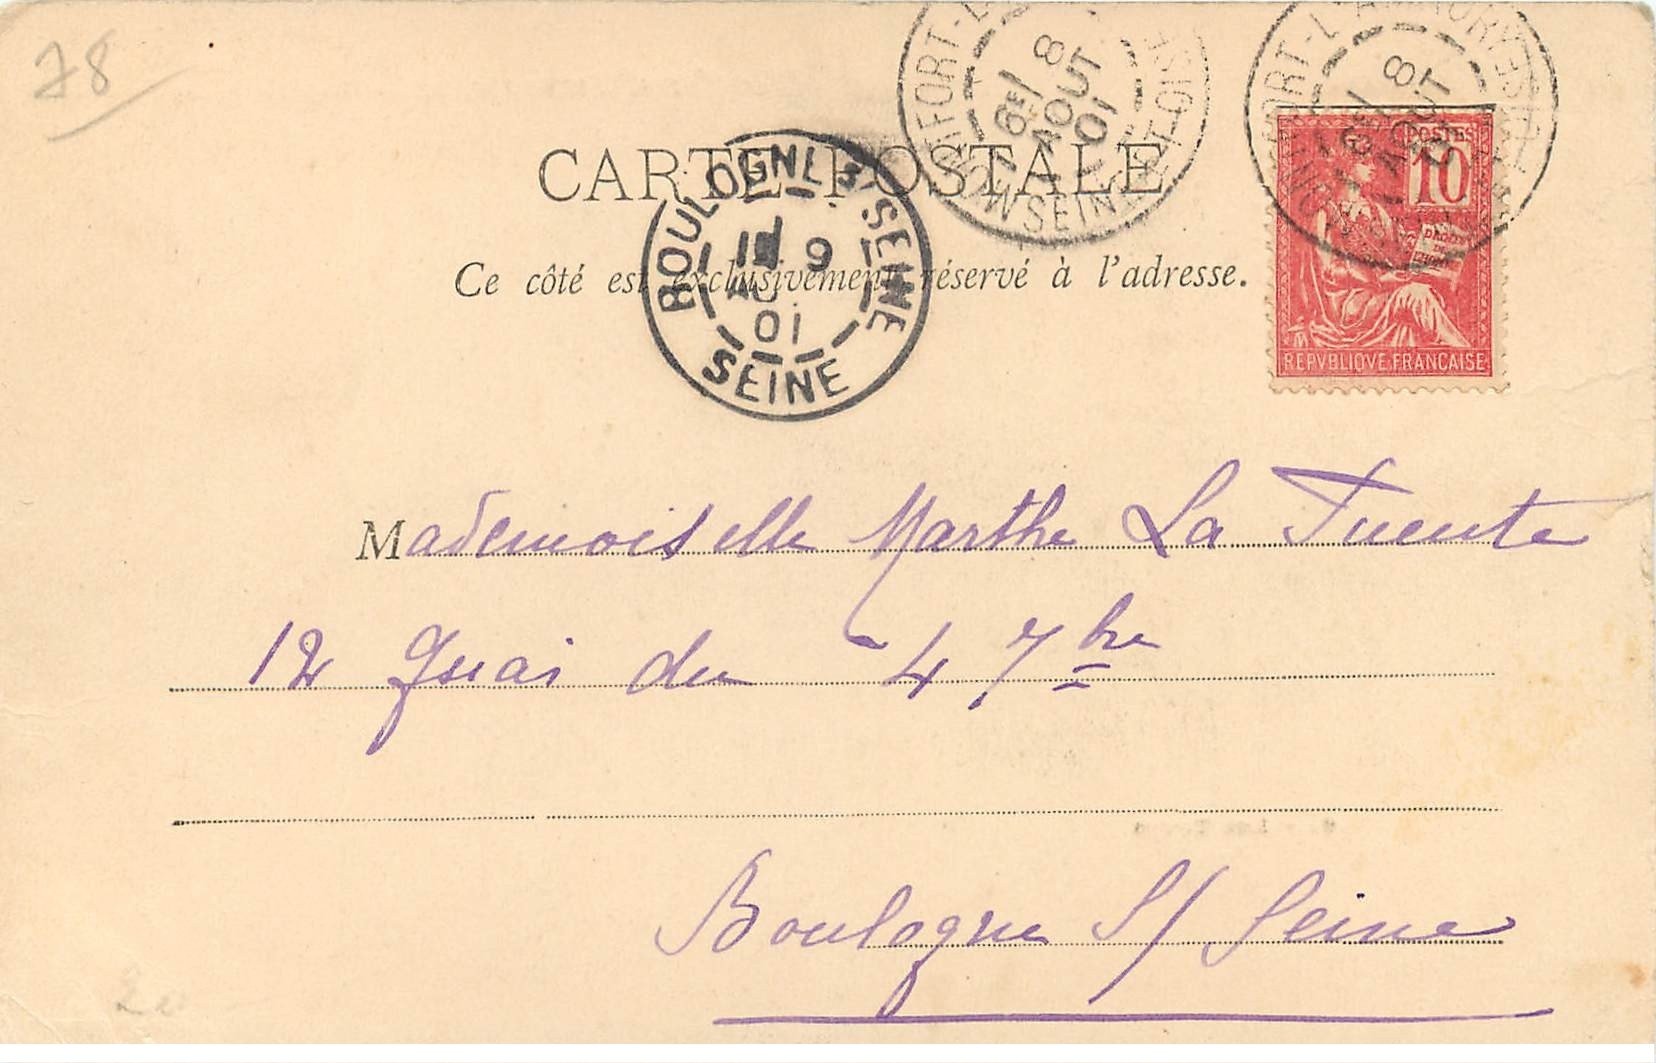 78
CARTE POSTALE
Ce côté est exclusivement réservé à l'adresse.
MONTFORT-L'AMAURY
SEINE-ET-OISE
8
AOUT
01
MONTFORT-L'AMAURY
SEINE-ET-OISE
8
AOUT
01
POSTES
10
DROITS
DE
L'HOMME
REPVBLIQVE FRANCAISE
BOULOGNE S' SEINE
9
AOUT
01
SEINE
Mademoiselle Marthe La Fuente
12 Quai du 4 7bre
Boulogne S/ Seine